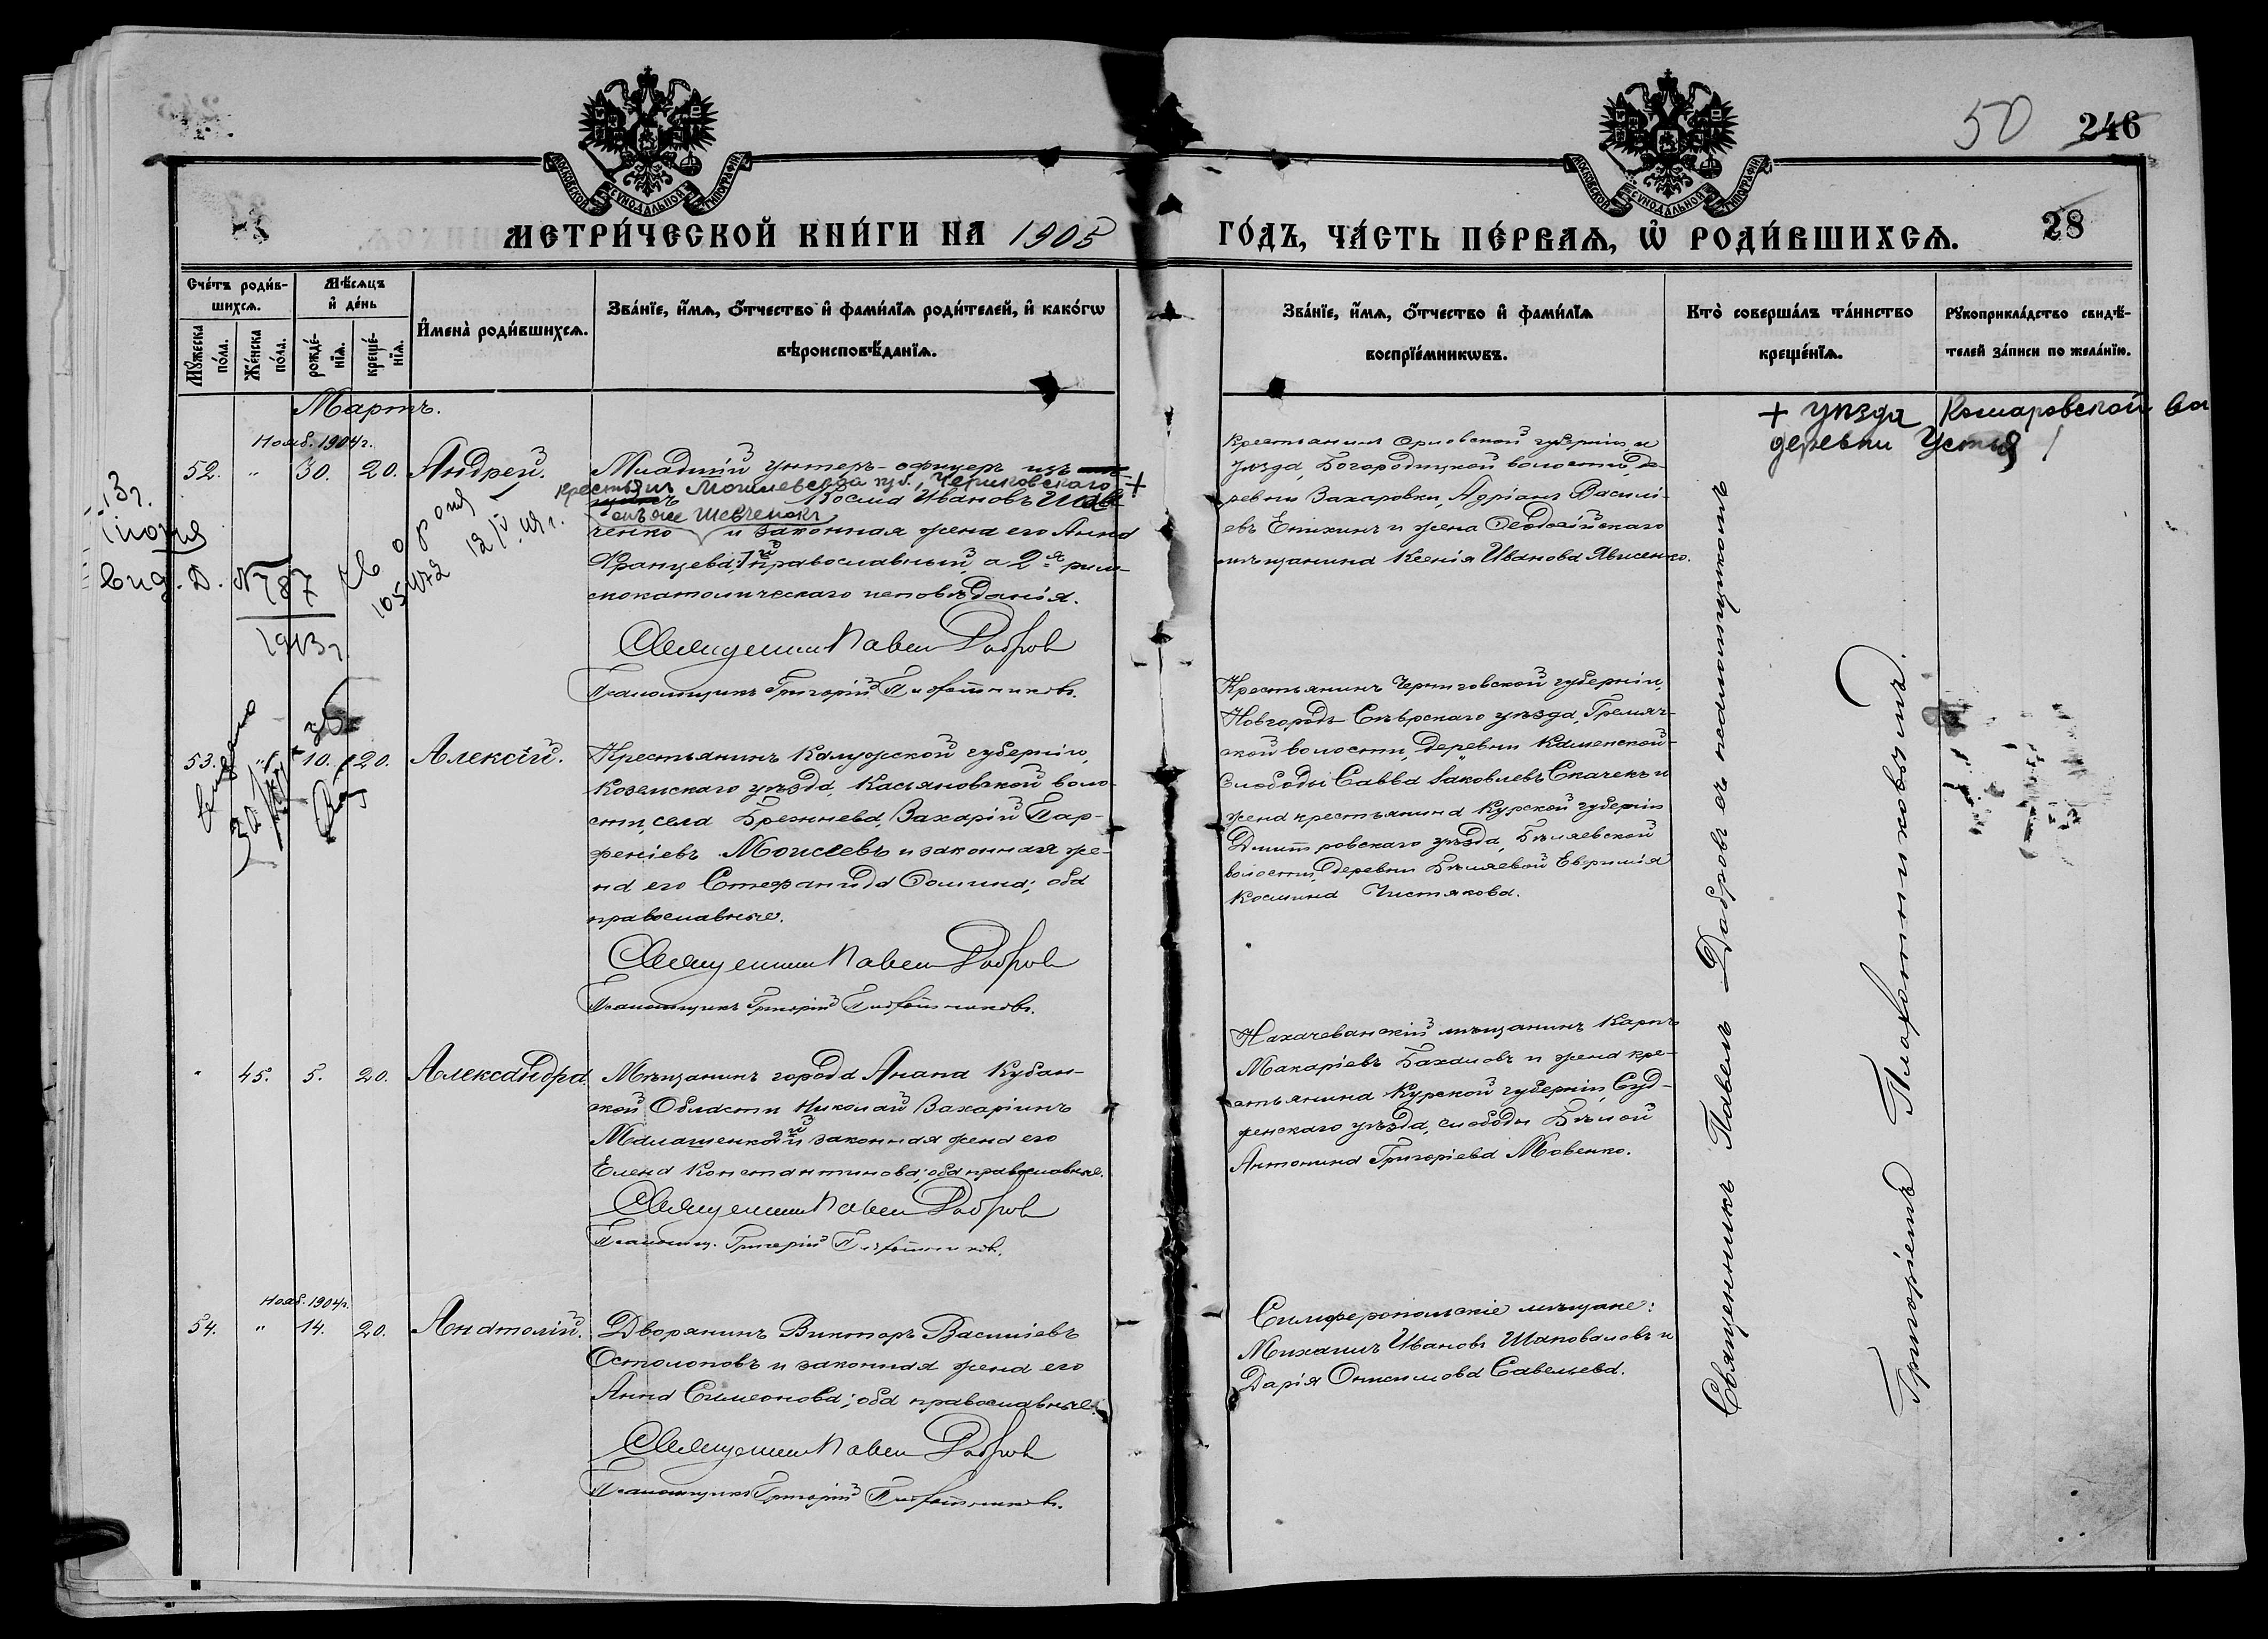 50 246
МОСКОВСКОЙ СУНОДАЛЬНОЙ ТИПОГРАФІИ
МОСКОВСКОЙ СУНОДАЛЬНОЙ ТИПОГРАФІИ
МЕТРИ́ЧЕСКОЙ КНИ́ГИ НА 1905 ГО́ДЪ, ЧА́СТЬ ПЕ́РВАѦ, Ѽ РОДИ́ВШИХСѦ. 28
Сче́тъ роди́в-
шихсѧ.
Мꙋ́жеска по́ла.
Же́нска по́ла.
Мѣ́сѧцъ
и҆ де́нь
рожде́-
нїѧ.
креще́-
нїѧ.
И҆мена̀ роди́вшихсѧ.
Зва́нїе, и҆́мѧ, ѻ҆́тчество и҆ фами́лїѧ роди́телей, и҆ како́гѡ
вѣроисповѣ́данїѧ.
Зва́нїе, и҆́мѧ, ѻ҆́тчество и҆ фами́лїѧ
воспрїе́мникѡвъ.
Кто̀ соверша́лъ та́инство
креще́нїѧ.
Рꙋкоприкла́дство свидѣ́-
телей за́писи по жела́нїю.
Мартъ.
Нояб. 1904 г.
52. " 30. 20. Андрей.
Младшій унтеръ-офицеръ изъ
крестьянъ Могилевской губ., Чериковскаго +
Косма Ивановъ Шев
онъ же Шевченокъ
ченко и законная жена его Анна
Францева, 1й православный, а 2я рим-
скокатолическаго исповѣданія.
Священникъ Павелъ Добровъ
Псаломщикъ Григорій Плотниковъ.
13 г.
Іюня
выд. Д. № 787
1913 г.
105472 12/IV
Крестьянинъ Орловской губерніи и
уѣзда, Богородицкой волости, де-
ревни Захаровки, Адріанъ Василі-
евъ Епихинъ и жена Ѳеодосійскаго
мѣщанина Ксенія Иванова Явисенко.
+ уѣзда Комаровской вол
деревни Устья
53. " 10. 20. Алексій.
Крестьянинъ Калужской губерніи,
Козельскаго уѣзда, Касьяновской воло-
сти, села Брежнева, Захарій Пар-
феніевъ Моисеевъ и законная же-
на его Стефанида Ѳомина; оба
православные.
Священникъ Павелъ Добровъ
Псаломщикъ Григорій Плотниковъ.
Крестьянинъ Черниговской губерніи,
Новгородъ-Сѣверскаго уѣзда, Гремяч-
ской волости, деревни Каменской-
Слободы Савва Іаковлевъ Скачекъ и
жена крестьянина Курской губерніи
Дмитровскаго уѣзда, Бѣляевской
волости, деревни Бѣляевой Евфимія
Космина Чистякова.
" 45. 5. 20. Александра.
Мѣщанинъ города Анапа Кубан-
ской Области Николай Захаріинъ
Малашенко и законная жена его
Елена Константинова; оба православные.
Священникъ Павелъ Добровъ
Псаломщ. Григорій Плотниковъ.
Нахичеванскій мѣщанинъ Карпъ
Макаріевъ Бахаловъ и жена кре-
стьянина Курской губерніи, Суд-
женскаго уѣзда, слободы Бѣлой
Антонина Григоріева Мовенко.
Нояб. 1904 г.
54. " 14. 20. Анатолій.
Дворянинъ Викторъ Василіевъ
Остолоповъ и законная жена его
Анна Симеонова; оба православные.
Священникъ Павелъ Добровъ
Псаломщикъ Григорій Плотниковъ.
Симферопольскіе мѣщане:
Михаилъ Ивановъ Шаповаловъ и
Дарія Онисимова Савельева.
Священникъ Павелъ Добровъ съ псаломщикомъ
Григоріемъ Плотниковымъ.